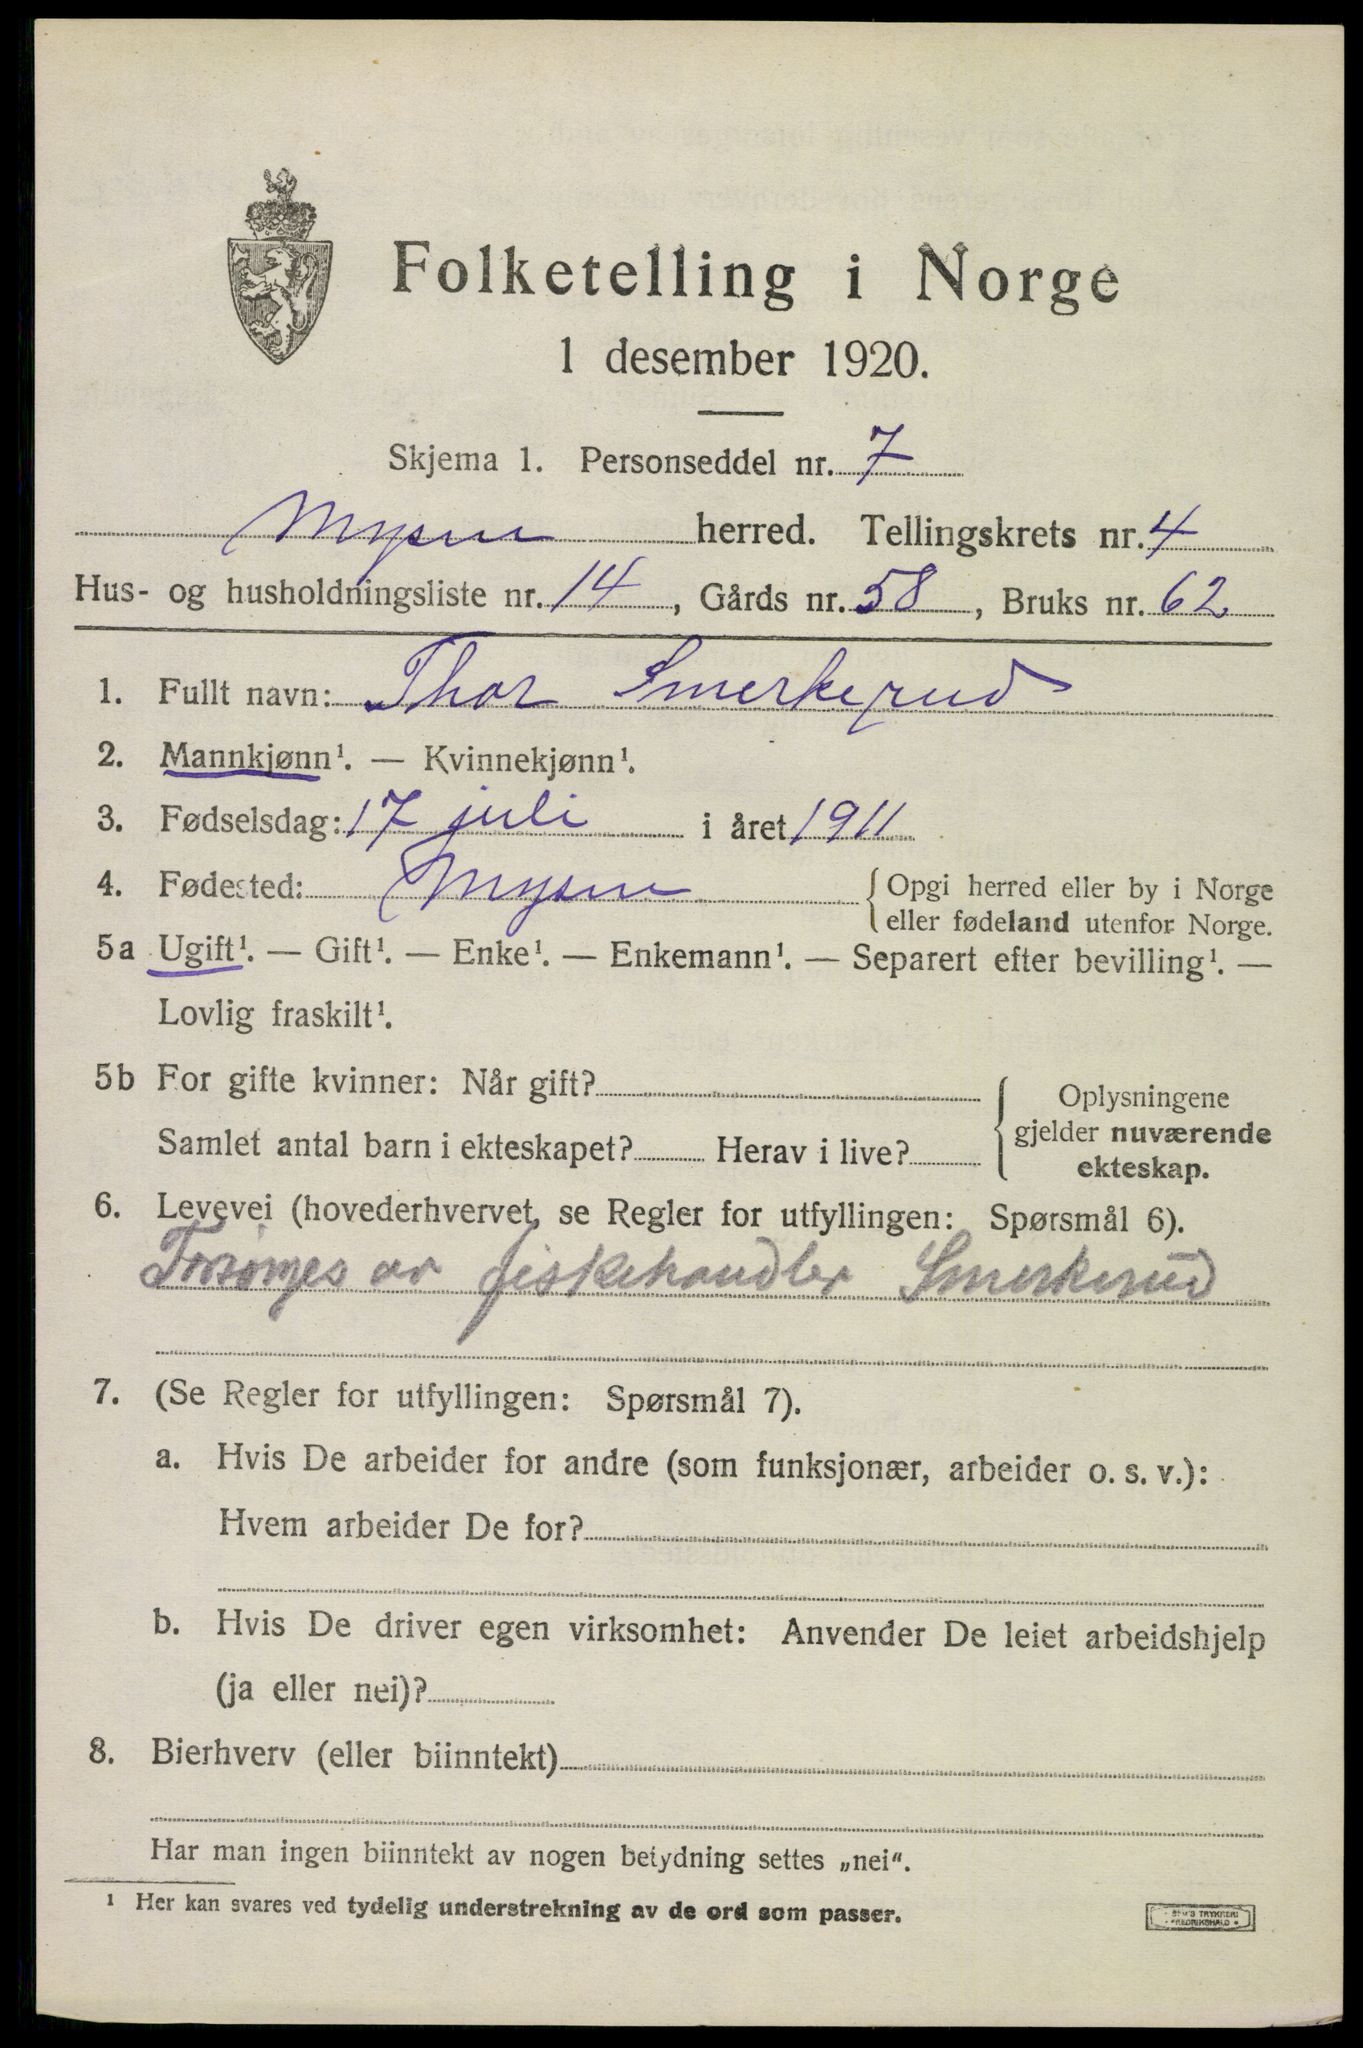 Folketelling i Norge
1 desember 1920.
Skjema 1. Personseddel nr. 7
Mysen herred. Tellingskrets nr. 4
Hus- og husholdningsliste nr. 14, Gårds nr. 58, Bruks nr. 62
1. Fullt navn: Thor Smerkerud
2. Mannkjønn¹. — Kvinnekjønn¹.
3. Fødselsdag: 17 juli i året 1911
4. Fødested: Mysen {Opgi herred eller by i Norge
eller fødeland utenfor Norge.
5a Ugift¹. — Gift¹. — Enke¹. — Enkemann¹. — Separert efter bevilling¹. —
Lovlig fraskilt¹.
5b For gifte kvinner: Når gift?
Samlet antal barn i ekteskapet? Herav i live?
{Oplysningene
gjelder nuværende
ekteskap.
6. Levevei (hovederhvervet, se Regler for utfyllingen: Spørsmål 6).
Forsørges av fiskehandler Smerkerud
7. (Se Regler for utfyllingen: Spørsmål 7).
a. Hvis De arbeider for andre (som funksjonær, arbeider o. s. v.):
Hvem arbeider De for?
b. Hvis De driver egen virksomhet: Anvender De leiet arbeidshjelp
(ja eller nei)?
8. Bierhverv (eller biinntekt)
Har man ingen biinntekt av nogen betydning settes „nei“.
¹ Her kan svares ved tydelig understrekning av de ord som passer.
TRYKKERI
FREDRIKSHALD